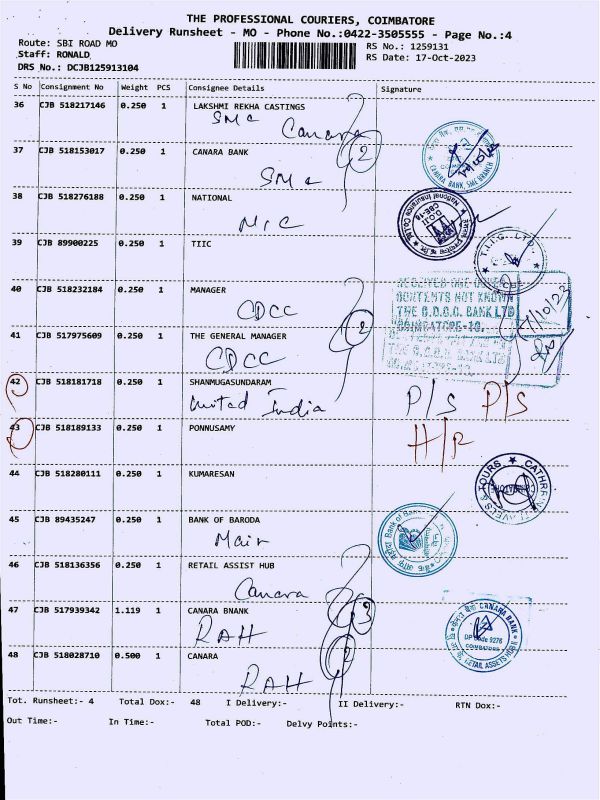 THE PROFESSIONAL COURIERS, COIMBATORE
Delivery Runsheet - MO - Phone No.:0422-3505555 - Page No.:4
Route: SBI ROAD MO
RS No.: 1259131
Staff: RONALD
RS Date: 17-Oct-2023
DRS No.: DCJB125913104
S No Consignment No Weight PCS Consignee Details Signature
36 CJB 518217146 0.250 1 LAKSHMI REKHA CASTINGS
SMC Canara
37 CJB 518153017 0.250 1 CANARA BANK
2
SMC
CANARA BANK, SME BRANCH
38 CJB 518276188 0.250 1 NATIONAL
NIC
National Insurance Co. Ltd.
39 CJB 89900225 0.250 1 TIIC
T.I.I.C. LTD.
40 CJB 518232184 0.250 1 MANAGER
CDCC
RECEIVED ONE COVER
CONTENTS NOT KNOWN
THE C.D.C.C. BANK LTD
COIMBATORE-18.
17/10/23
41 CJB 517975609 0.250 1 THE GENERAL MANAGER
2
CDCC
THE C.D.C.C. BANK LTD
42 CJB 518181718 0.250 1 SHANMUGASUNDARAM
United India P/S P/S
43 CJB 518189133 0.250 1 PONNUSAMY
H/R
44 CJB 518280111 0.250 1 KUMARESAN
TOURS
45 CJB 89435247 0.250 1 BANK OF BARODA
Main
Bank of Baroda
46 CJB 518136356 0.250 1 RETAIL ASSIST HUB
Canara
47 CJB 517939342 1.119 1 CANARA BNANK
3
RAH
CANARA BANK
DP Code 9276
COIMBATORE
RETAIL ASSETS HUB
48 CJB 518028710 0.500 1 CANARA
2
RAH
Tot. Runsheet:- 4 Total Dox:- 48 I Delivery:- II Delivery:- RTN Dox:-
Out Time:- In Time:- Total POD:- Delvy Points:-